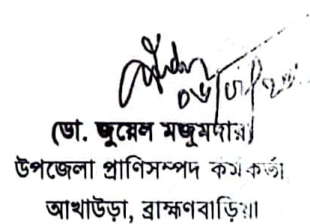 (ডা. জুয়েল মজুমদার)
উপজেলা প্রাণিসম্পদ কর্মকর্তা
আখাউড়া, ব্রাহ্মণবাড়িয়া।